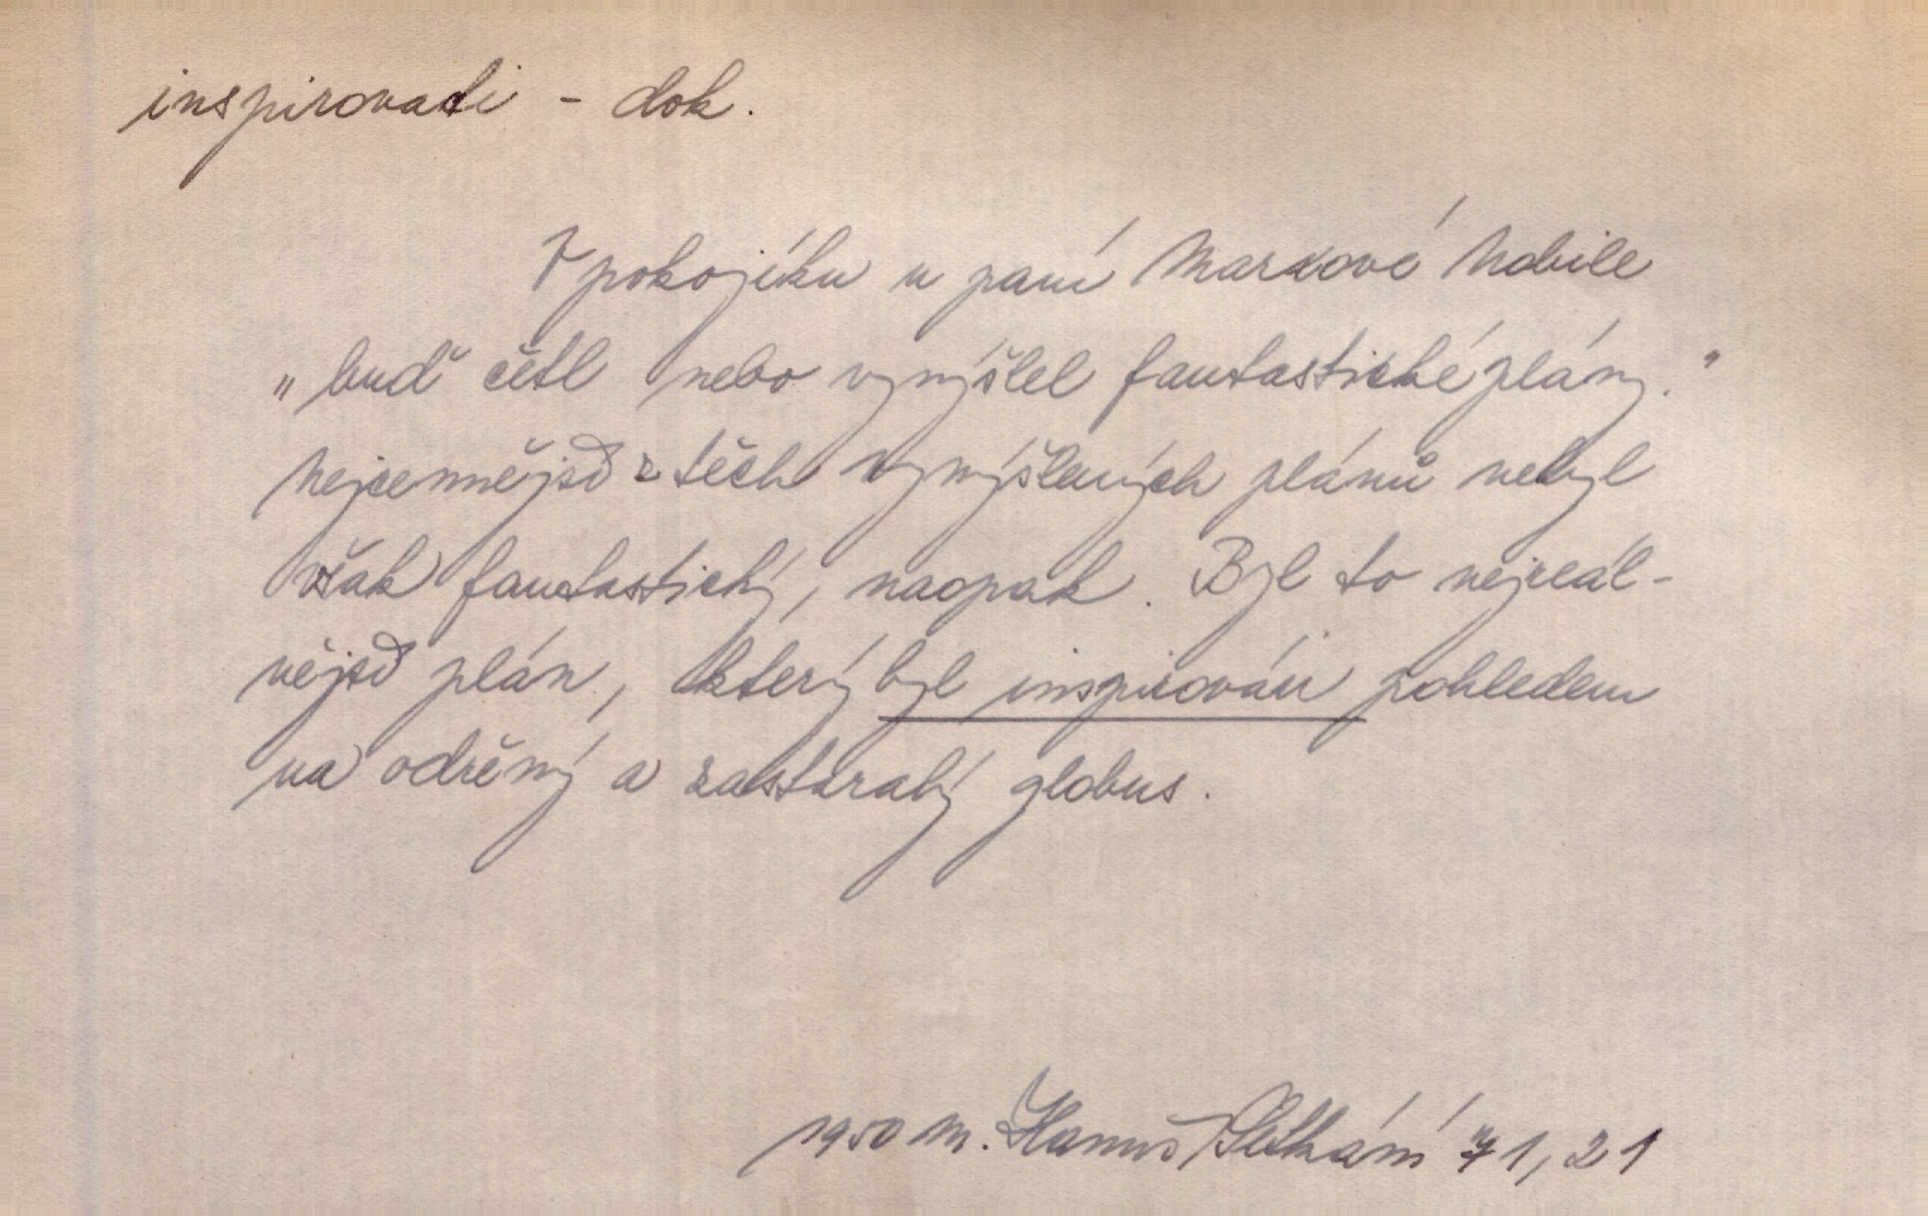 inspirovati - dok.
V pokojíku u paní Markové Nobile
„buď četl nebo vymýšlel fantastické plány."
Nejcennější z těch vymýšlených plánů nebyl
však fantastický, naopak. Byl to nejreál-
nější plán, který byl inspirován pohledem
na odřený a zastaralý globus.
1950 M. Hanuš, Setkání 71, 21